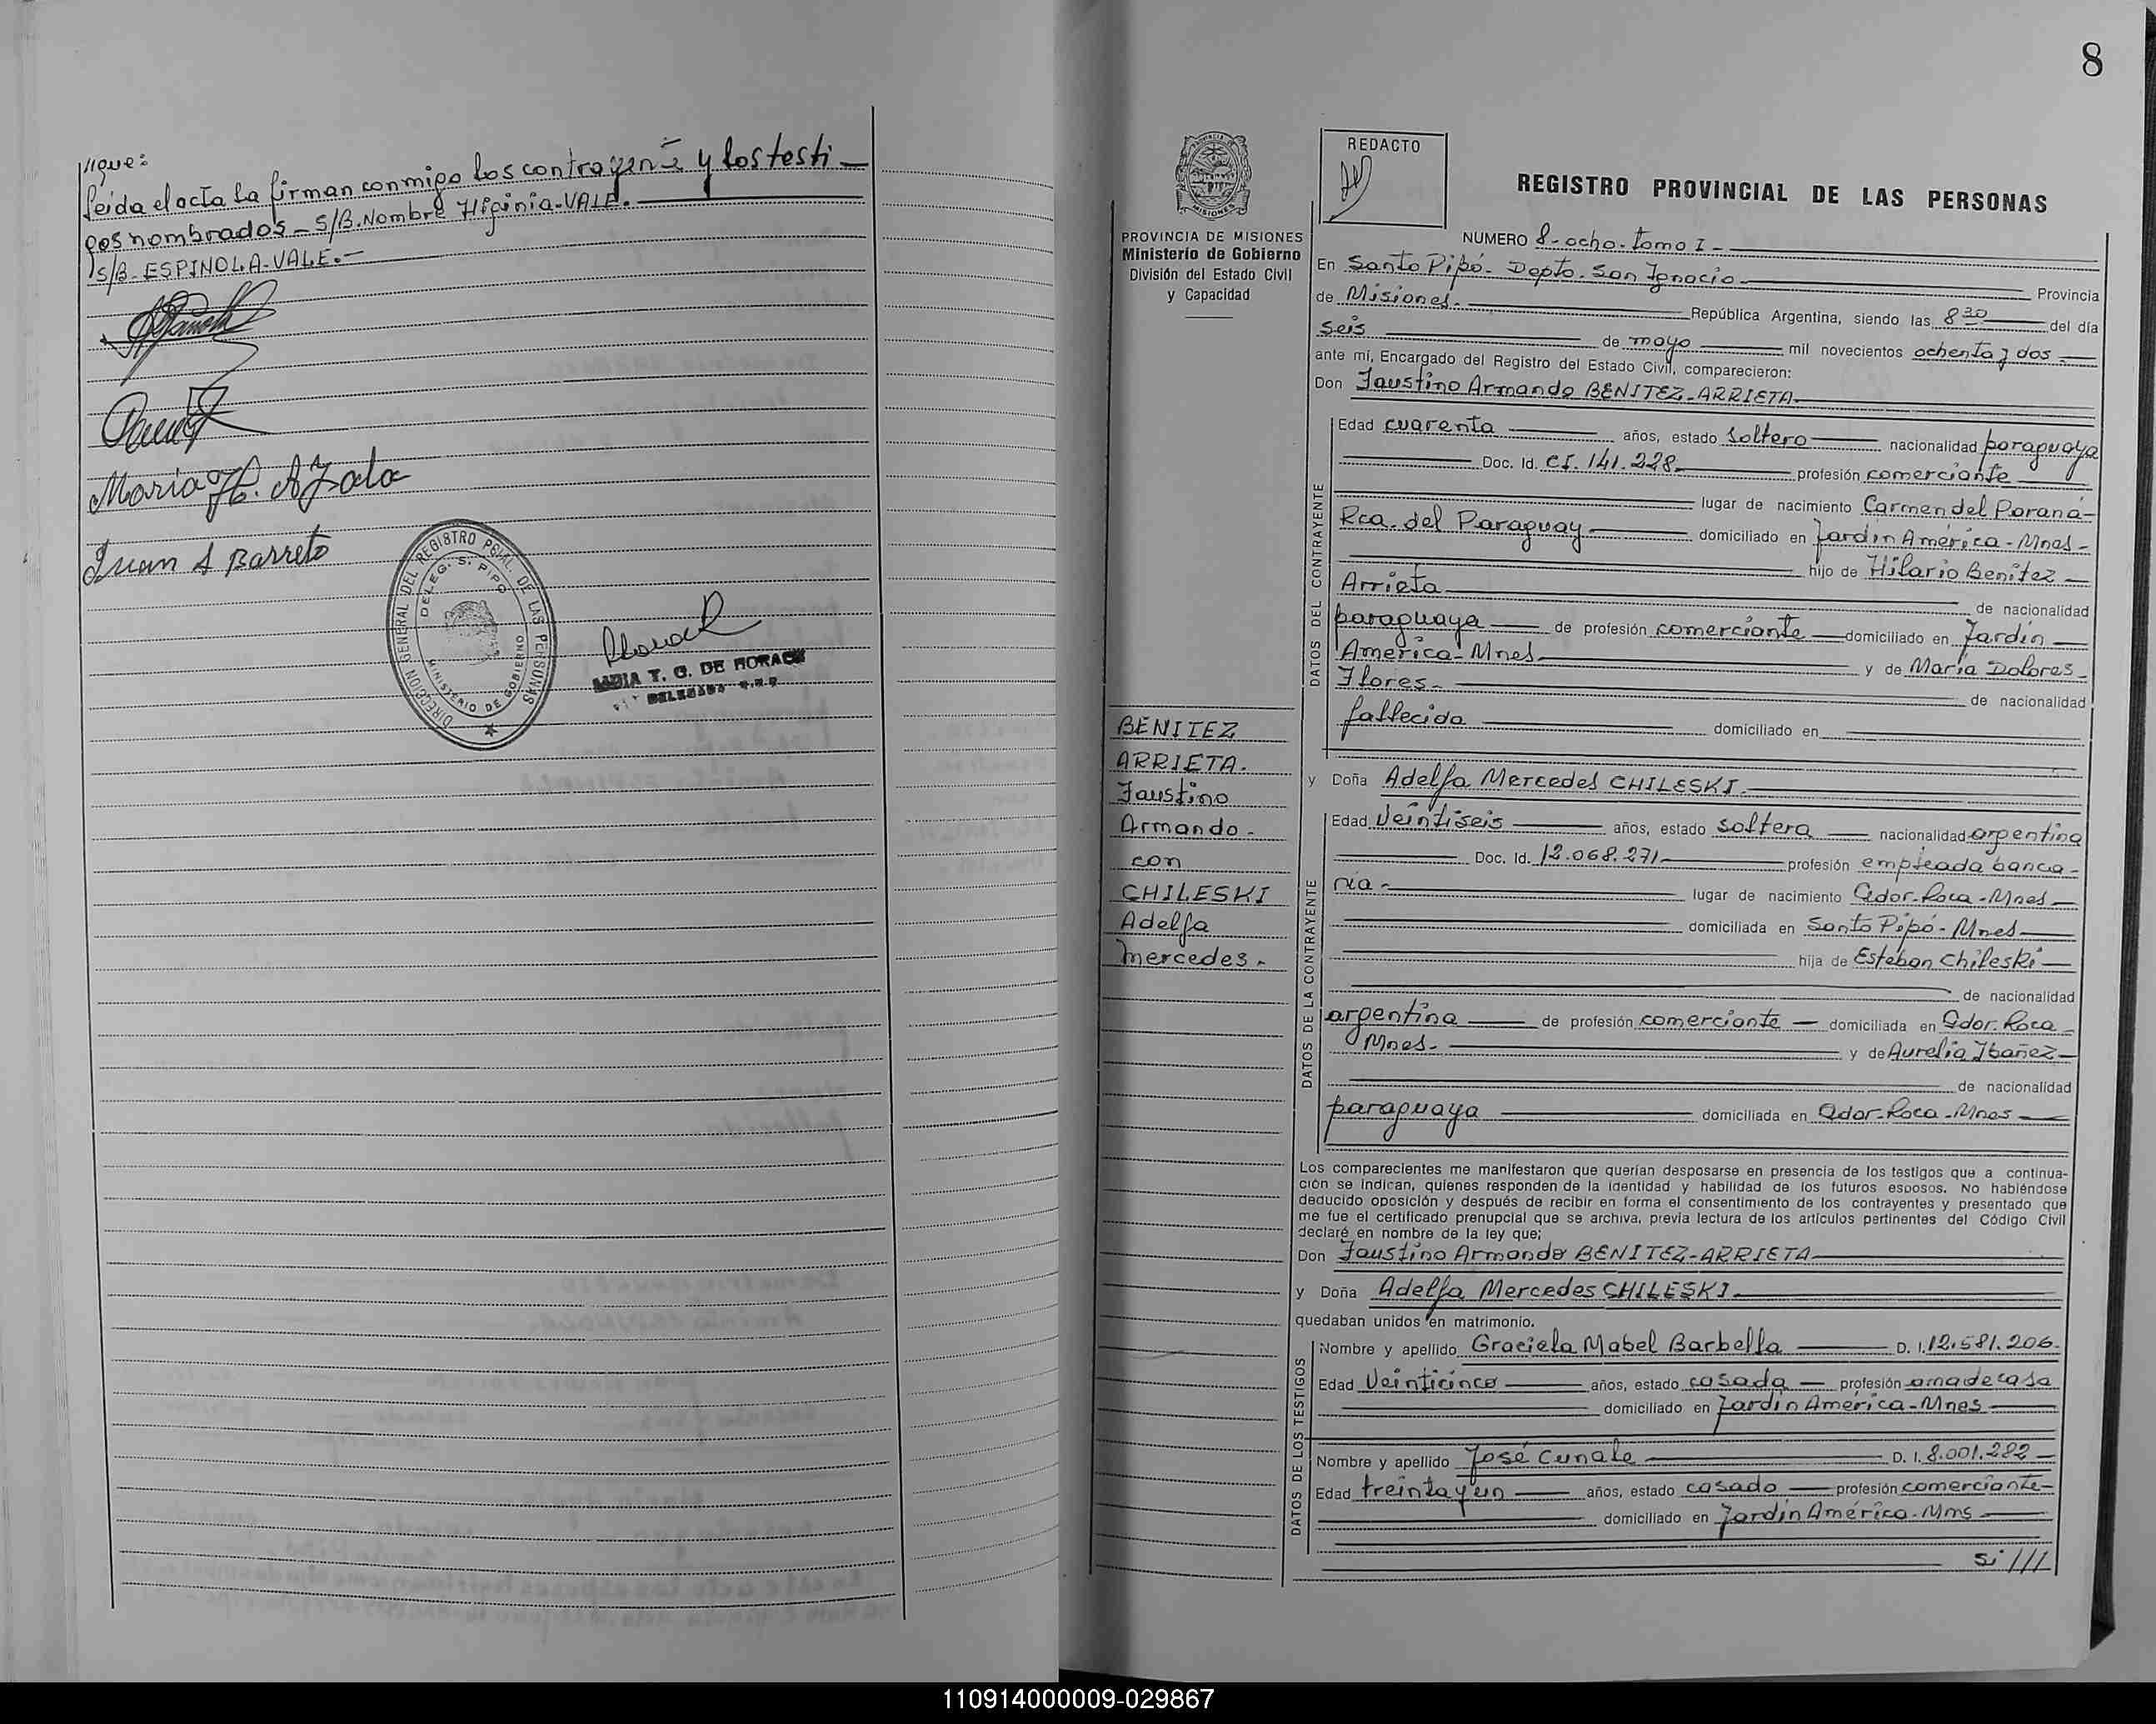 sigue:
Leida el acta la firman conmigo los contrayente y los testi-
gos nombrados - S/B. Nombre Higinia - VALE.
S/B - ESPINOLA - VALE.-
Maria H. Ayala
Juan A Barreto
DIRECCION GENERAL DEL REGISTRO PCIAL. DE LAS PERSONAS
DELEG. S. PIPO
MINISTERIO DE GOBIERNO
T. G. DE
8
PROVINCIA DE MISIONES
Ministerio de Gobierno
División del Estado Civil
y Capacidad
REDACTO
REGISTRO PROVINCIAL DE LAS PERSONAS
NUMERO 8-ocho-tomo I-
En Santo Pipó- Depto. San Ignacio
Provincia
de Misiones. República Argentina, siendo las 8 30 del día
seis de mayo mil novecientos ochenta y dos
ante mí, Encargado del Registro del Estado Civil, comparecieron:
Don Faustino Armando BENITEZ-ARRIETA
DATOS DEL CONTRAYENTE
Edad cuarenta años, estado soltero nacionalidad paraguaya
Doc. Id. CI. 141.228 profesión comerciante
lugar de nacimiento Carmen del Paraná-
Rca. del Paraguay domiciliado en Jardín América-Mnes-
hijo de Hilario Benitez
Arrieta de nacionalidad
paraguaya de profesión comerciante domiciliado en Jardín
America-Mnes y de María Dolores
Flores- de nacionalidad
fallecida domiciliado en
y Doña Adelfa Mercedes CHILESKI
DATOS DE LA CONTRAYENTE
Edad veintiseis años, estado soltera nacionalidad argentina
Doc. Id. 12.068.271 profesión empleada banca-
ria- lugar de nacimiento Gdor. Roca-Mnes
domiciliada en Santo Pipó-Mnes
hija de Esteban Chileski
de nacionalidad
argentina de profesión comerciante domiciliada en Gdor. Roca
Mnes- y de Aurelia Ibañez
de nacionalidad
paraguaya domiciliada en Gdor. Roca-Mnes
BENITEZ
ARRIETA.
Faustino
Armando-
con
CHILESKI
Adelfa
Mercedes-
Los comparecientes me manifestaron que querían desposarse en presencia de los testigos que a continua-
ción se indican, quienes responden de la identidad y habilidad de los futuros esposos. No habiéndose
deducido oposición y después de recibir en forma el consentimiento de los contrayentes y presentado que
me fue el certificado prenupcial que se archiva, previa lectura de los artículos pertinentes del Código Civil
declaré en nombre de la ley que;
Don Faustino Armando BENITEZ-ARRIETA
y Doña Adelfa Mercedes CHILESKI
quedaban unidos en matrimonio.
DATOS DE LOS TESTIGOS
Nombre y apellido Graciela Mabel Barbella D. I. 12.581.206
Edad veinticinco años, estado casada profesión ama de casa
domiciliado en Jardín América-Mnes
Nombre y apellido José Cunale D. I. 8.001.282
Edad treinta y un años, estado casado profesión comerciante
domiciliado en Jardín América-Mnes
si///
110914000009-029867